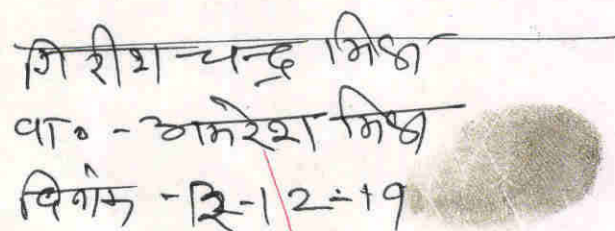 गिरीश चन्द्र मिश्रा
वा॰ - अमरेश मिश्रा
दिनांक - 13-12-19